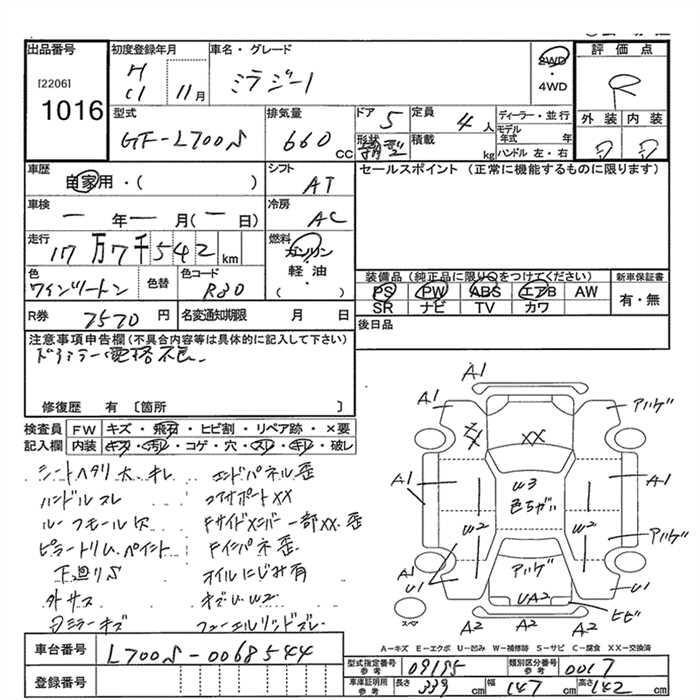 出品番号
[2206]
1016
初度登録年月
H 11月
車名・グレード
ミラジーノ
2WD
・
4WD
評価点
R
外装 内装
D D
型式
GF-L700S
排気量
660 CC
ドア 5
形状
定員 4 人
積載 kg
ディーラー・並行
モデル年式 年
ハンドル 左・右
車歴
自家用・( )
シフト
AT
セールスポイント (正常に機能するものに限ります)
車検
一 年 一 月(一 日)
冷房
AC
走行
17万7千542 km
燃料
ガソリン
軽・油
( )
色
ワインツートン
色替
色コード
R30
装備品(純正品に限り○をつけてください)
PS PW ABS エアB AW
SR ナビ TV カワ
新車保証書
有・無
R券
7570 円
名変通知期限 月 日
後日品
注意事項申告欄(不具合内容等は具体的に記入して下さい)
ドアミラー電格不良
修復歴 有〔箇所 〕
検査員
記入欄
FW キズ・飛石・ヒビ割・リペア跡・×要
内装 キズ・汚れ・コゲ・穴・スレ・キレ・破レ
シートヘタリ大.キレ
ハンドルスレ
ルーフモール欠
ピラートリム.ペイント
下廻りS
外サス
Dミラーキズ
エンドパネル歪
コアサポートXX
FサイドXンバー一部XX.歪
Fインパネ歪
オイルにじみ有
キズU.W2
フューエルリッドズレ
A1
A1
アハゲ
XX
W3
色ちがい
A1
A1
W2
W2
アハゲ
アハゲ
A1
U1
U1
UA2
ヒビ
スペ
A2 A2 A2
A-キズ E-エクボ U-凹み W-補修跡 S-サビ C-腐食 XX-交換済
車台番号
L700S-0068544
登録番号
型式指定番号
参考
09195
類別区分番号
参考
0017
車庫証明用
参考
長さ 339 cm 幅 147 cm 高さ 142 cm